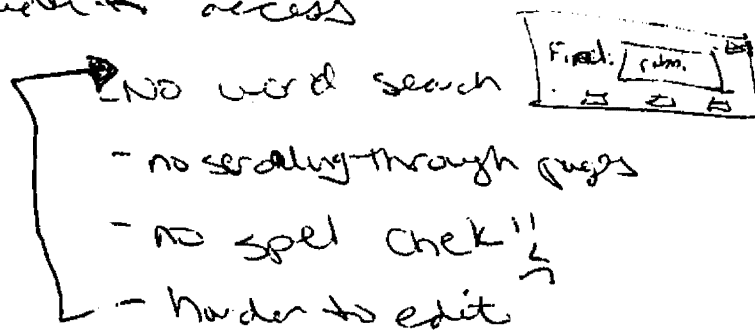 access
- No word search
Find:
- no scrolling through pages
- no spel chek!!
- harder to edit